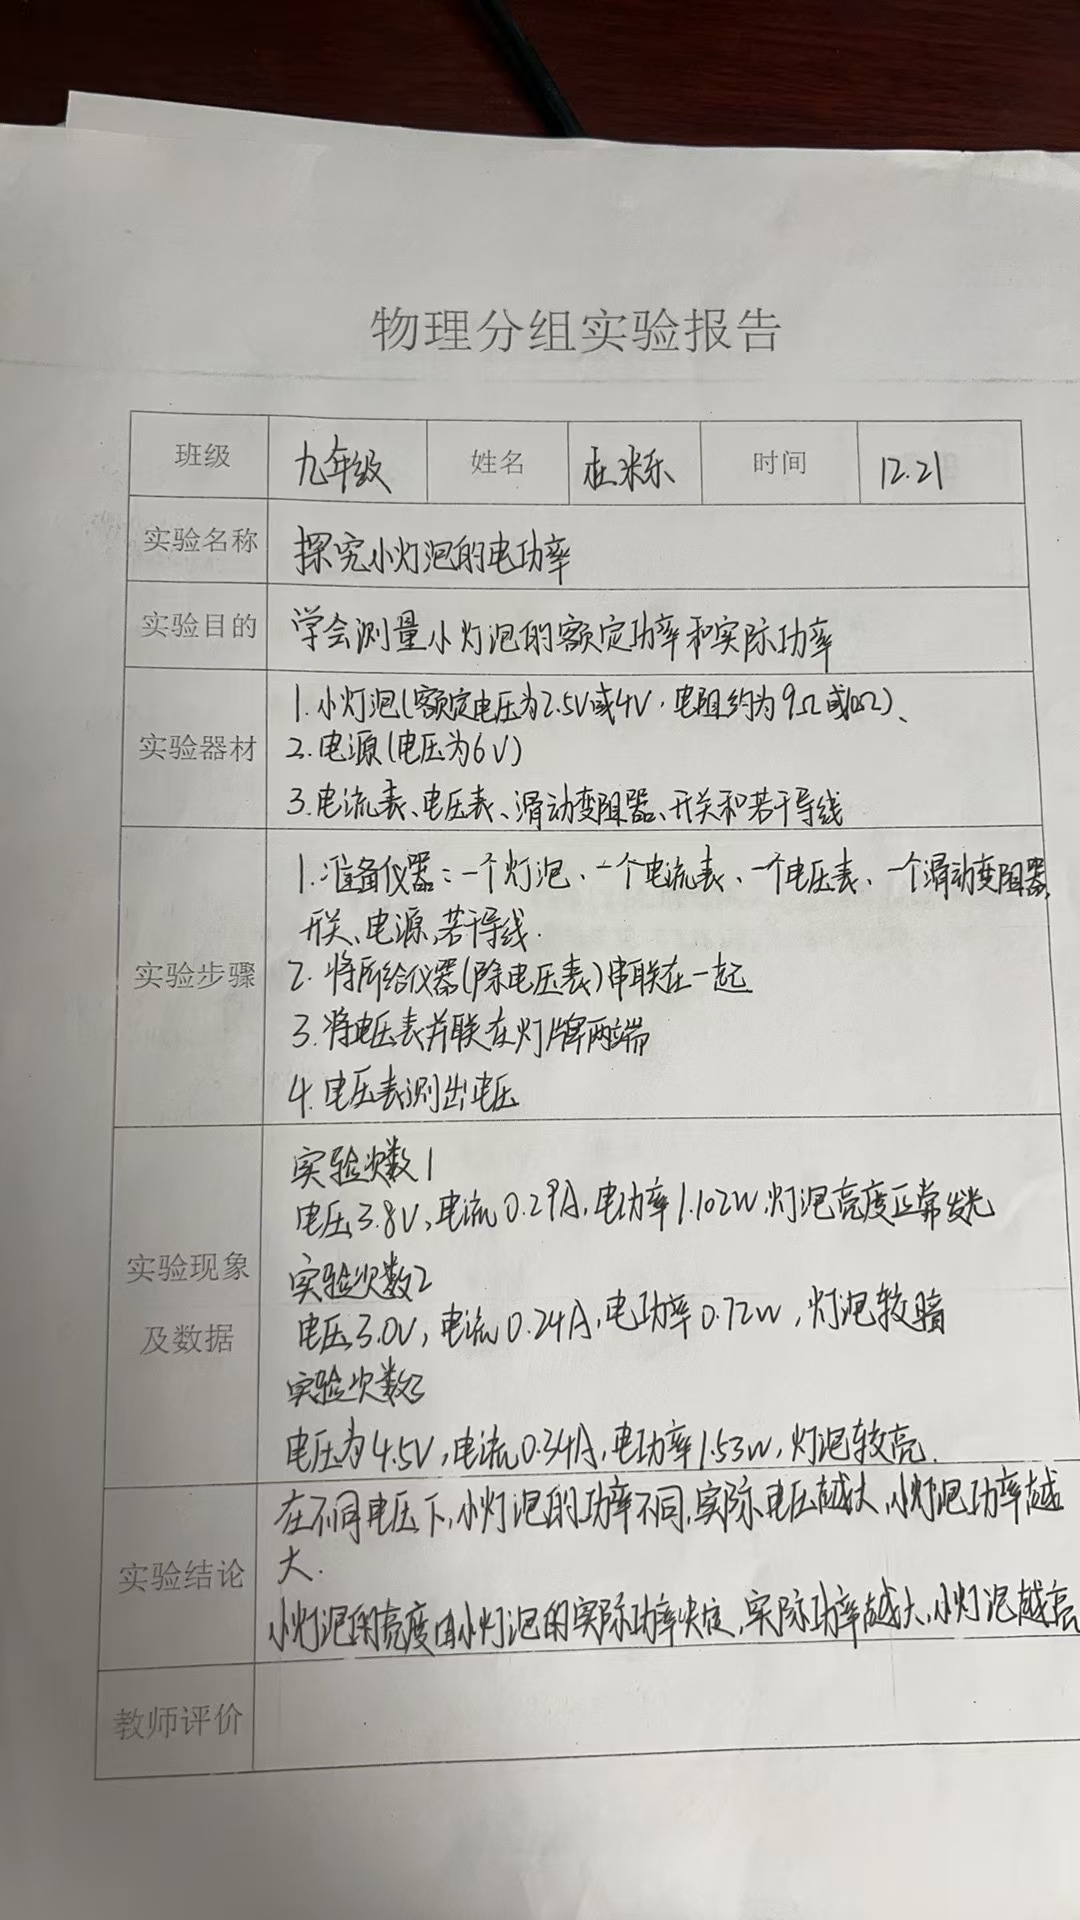 物理分组实验报告
班级 九年级 姓名 杜米乐 时间 12.21
实验名称 探究小灯泡的电功率
实验目的 学会测量小灯泡的额定功率和实际功率
实验器材
1.小灯泡(额定电压为2.5V或4V,电阻约为9Ω或10Ω)、
2.电源(电压为6V)
3.电流表、电压表、滑动变阻器、开关和若干导线
实验步骤
1.准备仪器:一个灯泡、一个电流表、一个电压表、一个滑动变阻器,
开关、电源,若干导线.
2.将所给仪器(除电压表)串联在一起
3.将电压表并联在灯牌两端
4.电压表测出电压
实验现象
及数据
实验次数1
电压3.8V,电流0.29A,电功率1.102W,灯泡亮度正常发光
实验次数2
电压3.0V,电流0.24A,电功率0.72W,灯泡较暗
实验次数3
电压为4.5V,电流0.34A,电功率1.53W,灯泡较亮.
实验结论
在不同电压下,小灯泡的功率不同,实际电压越大,小灯泡功率越
大.
小灯泡的亮度由小灯泡的实际功率决定,实际功率越大,小灯泡越亮
教师评价